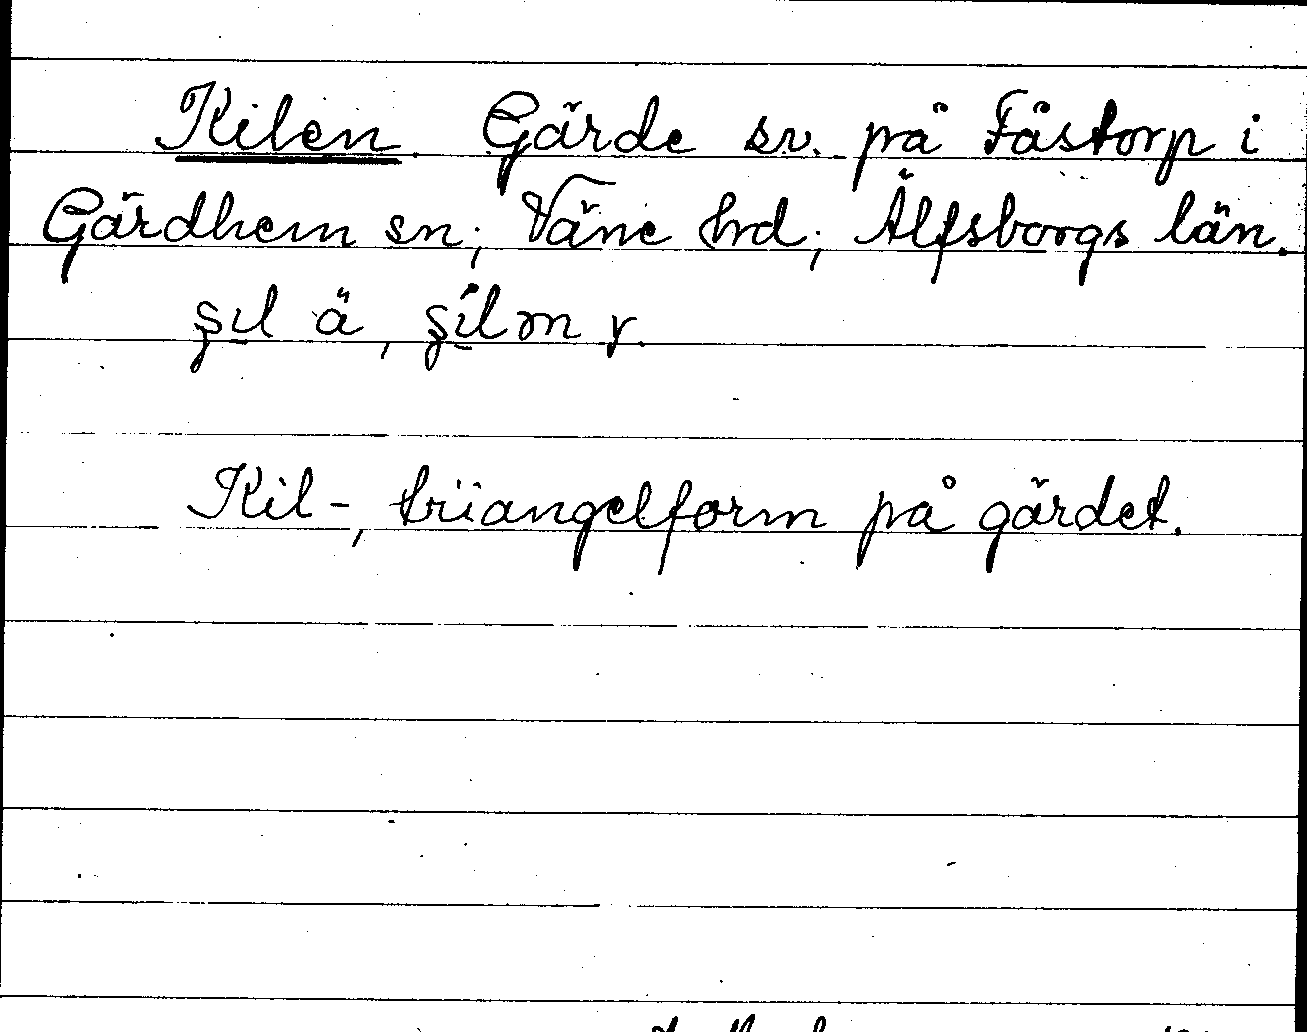 Kilen. Gärde sv. på Fästorp i
Gärdhem sn; Väne hrd; Älfsborgs län.
ä, y.
Kil-, triangelform på gärdet.